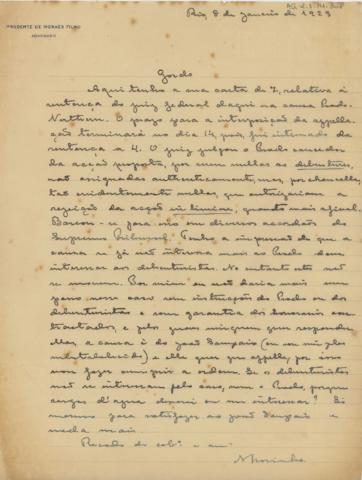 PRUDENTE DE MORAES FILHO
ADVOGADO
Rio, 8 de janeiro de 1929
Gordo
Aqui tenho a sua carta de 7, relativa á
sentença do juiz federal daqui na causa Prado-
Northern. O prazo para a interposição da appella-
ção terminará no dia 14, pois fui intimado da
sentença a 4. O juiz julgou o Prado carecedor
da acção proposta, por serem nullas as debentures,
não assignadas authenticamente, mas, por chancella,
tão evidentemente nullas, que autorizavam a
rejeição da acção in limine, quanto mais afinal.
Baseou-se para isso em diversos accordãos do
Supremo Tribunal. Tenho a impressão de que a
causa se já não interessa mais ao Prado deve
interessar aos debenturistas. No entanto estes não
se movem. Por mim eu não daria mais um
passo nesse caso sem instrucções do Prado ou dos
debenturistas e sem garantia dos honorarios con-
tractados, e pelos quaes ninguem quer responder.
Mas, a causa é do José Sampaio (eu sou simples
substabelecido) e elle quer que appelle, por isso
vou fazer cumprir a ordem. Se os debenturistas
não se interessam pelo caso, nem o Prado, porque
cargas d'agua devo eu me interessar? Si
mesmo para satisfazer ao José Sampaio e
nada mais.
Recado do